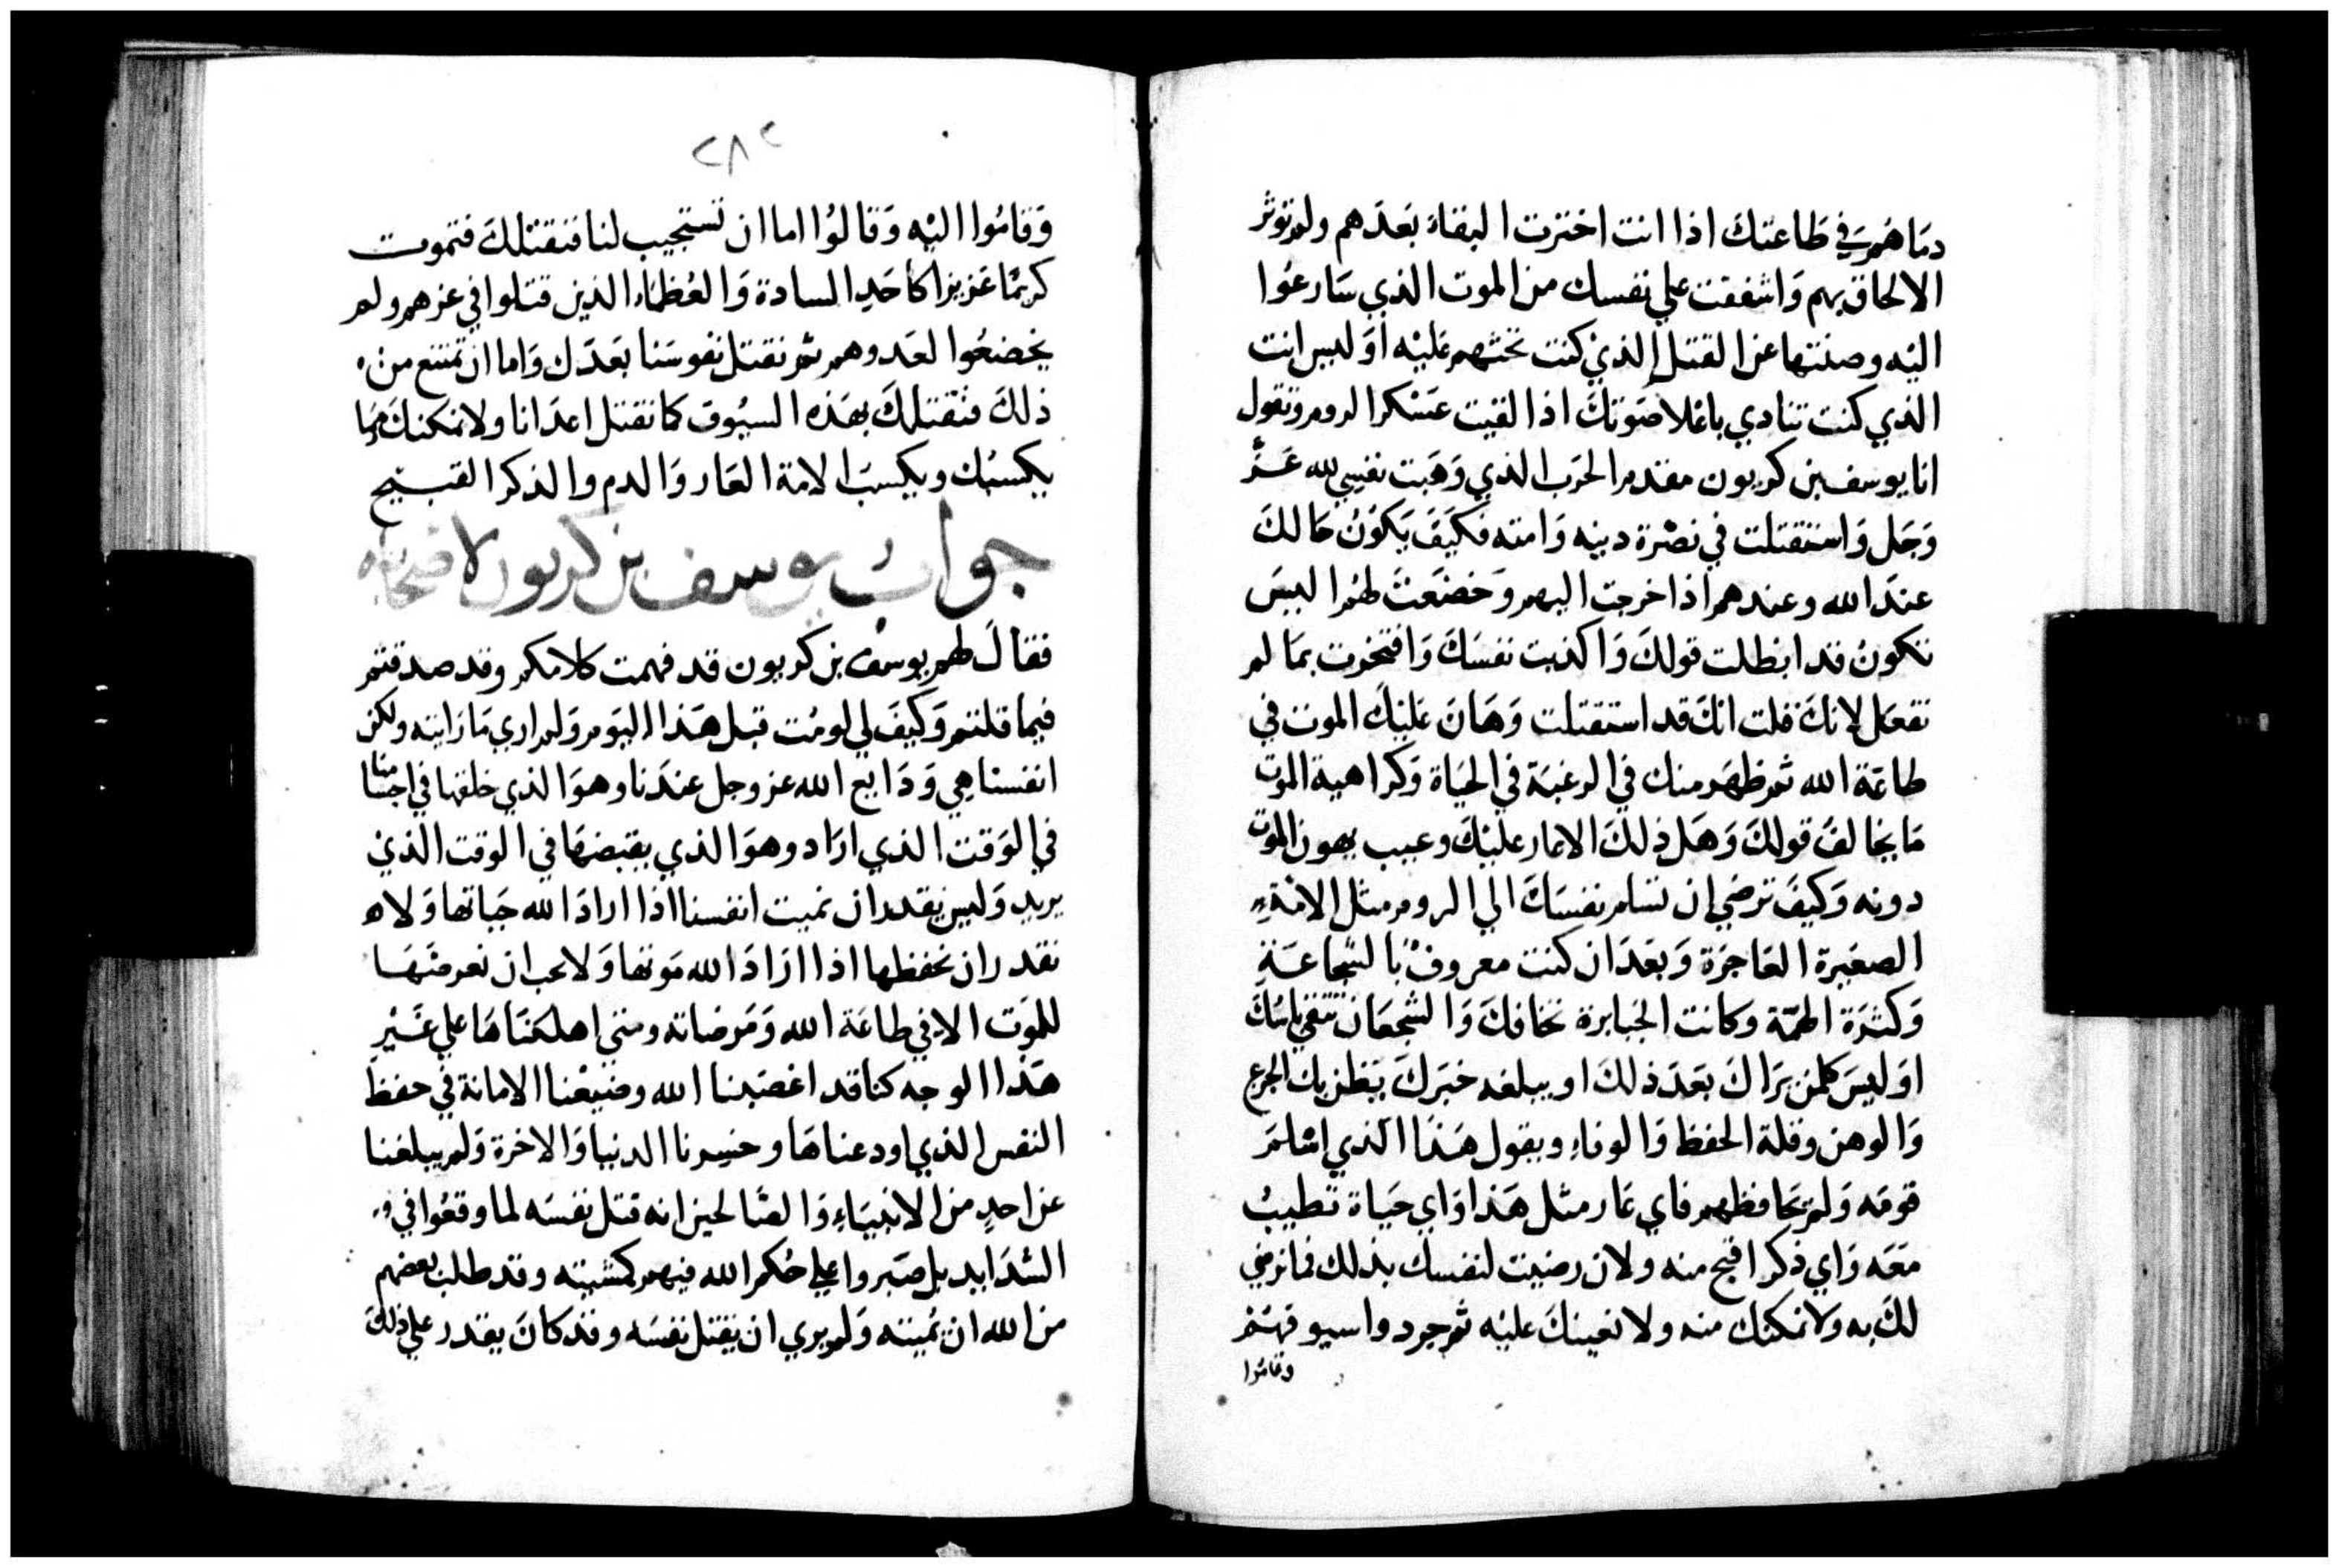 دماهم في طاعتك اذا انت اخترت البقاء بعدهم ولم توثر
الالحاق بهم واشفقت علي نفسك من الموت الذي سارعوا
اليه وصنتها عن القتل الذي كنت تحثهم عليه اوليس انت
الذي كنت تنادي باعلا صوتك اذا لقيت عسكر الروم وتقول
انا يوسف بن كريون مقدم الحرب الذي وهبت نفسي لله عز
وجل واستقتلت في نصرة دينه وامته فكيف يكون حالك
عند الله وعندهم اذا خرجت اليهم وخضعت لهم اليس
تكون قد ابطلت قولك واكذبت نفسك وافتخرت بما لم
تفعل لانك قلت انك قد استقتلت وهان عليك الموت في
طاعة الله ثم ظهر منك في الرغبة في الحياة وكراهية الموت
ما يخالف قولك وهل ذلك الا عار عليك وعيب يهون الموت
دونه وكيف ترضي ان تسلم نفسك الي الروم مثل الامة
الصغيرة العاجزة وبعد ان كنت معروف بالشجاعة
وكثرة الهمة وكانت الجبابرة تخافك والشجعان تتقي باسك
اوليس كلمن يراك بعد ذلك او يبلغه خبرك يظن بك الجزع
والوهن وقلة الحفظ والوفاء ويقول هذا الذي اسلم
قومه ولم يحافظهم فاي عار مثل هذا واي حياة تطيب
معه واي ذكر اقبح منه ولان رضيت لنفسك بذلك فما نرضي
لك به ولا نمكنك منه ولا نعينك عليه ثم جردوا سيوفهم
وقاموا
٢٨٢
وقاموا اليه وقالوا اما ان تستجيب لنا فنقتلك فتموت
كريما عزيزا كاحد السادة والعظماء الذين قتلوا في عزهم ولم
يخضعوا لعدوهم ثم نقتل نفوسنا بعدك واما ان تمتنع من
ذلك فنقتلك بهذه السيوف كما نقتل اعدانا ولا نمكنك مما
يكسبك ويكسب الامة العار والدم والذكر القبيح
جواب يوسف بن كريون لاصحابه
فقال لهم يوسف بن كريون قد فهمت كلامكم وقد صدقتم
فيما قلتم وكيف لي لو مت قبل هذا اليوم ولم اري ما رايته ولكن
انفسنا هي ودايع الله عز وجل عندنا وهو الذي خلقها في اجسامنا
في الوقت الذي اراد وهو الذي يقبضها في الوقت الذي
يريد وليس نقدر ان نميت انفسنا اذا اراد الله حياتها ولا
نقدر ان نحفظها اذا اراد الله موتها ولا يجب ان نعرضها
للموت الا في طاعة الله ومرضاته ومتي اهلكناها علي غير
هذا الوجه كنا قد اغضبنا الله وضيعنا الامانة في حفظ
النفس الذي اودعناها وخسرنا الدنيا والاخرة ولم يبلغنا
عن احد من الانبياء والصالحين انه قتل نفسه لما وقعوا في
الشدايد بل صبروا علي حكم الله فيهم كمشيته وقد طلب بعضهم
من الله ان يميته ولم يري ان يقتل نفسه وقد كان يقدر علي ذلك